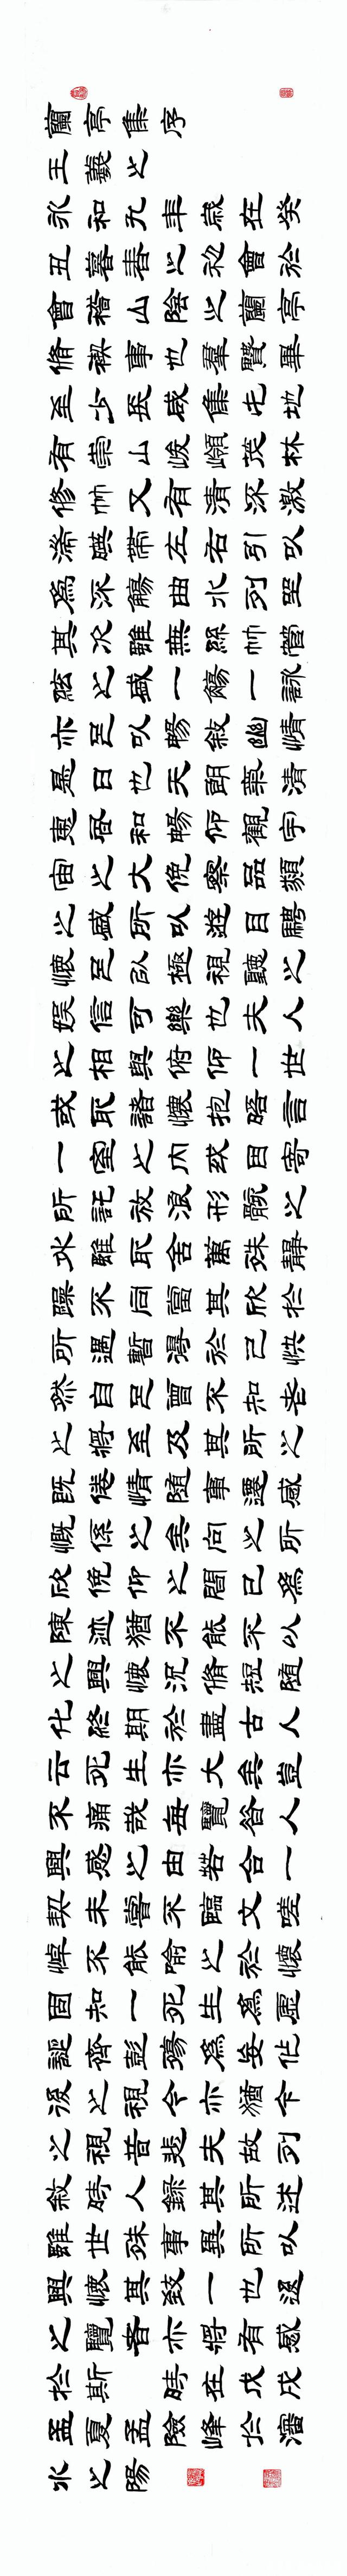 蘭亭集序
王羲之
永和九年歲在癸
丑暮春之初會於
會稽山陰之蘭亭
脩禊事也羣賢畢
至少長咸集此地
有崇山峻嶺茂林
修竹又有清流激
湍映帶左右引以
為流觴曲水列坐
其次雖無絲竹管
弦之盛一觴一詠
亦足以暢敘幽情
是日也天朗氣清
惠風和暢仰觀宇
宙之大俛察品類
之盛所以遊目騁
懷足以極視聽之
娛信可樂也夫人
之相與俯仰一世
或取諸懷抱晤言
一室之內或因寄
所託放浪形骸之
外雖取舍萬殊靜
躁不同當其欣於
所遇暫得於己快
然自足曾不知老
之將至及其所之
既倦情隨事遷感
慨係之矣向之所
欣俛仰之閒已為
陳迹猶不能不以
之興懷況脩短隨
化終期於盡古人
云死生亦大矣豈
不痛哉每覽昔人
興感之由若合一
契未嘗不臨文嗟
悼不能喻之於懷
固知一死生為虛
誕齊彭殤為妄作
後之視今亦猶今
之視昔悲夫故列
敘時人錄其所述
雖世殊事異所以
興懷其致一也後
之覽者亦將有感
於斯時在戊戌
孟夏孟險峰於瀋
水之陽